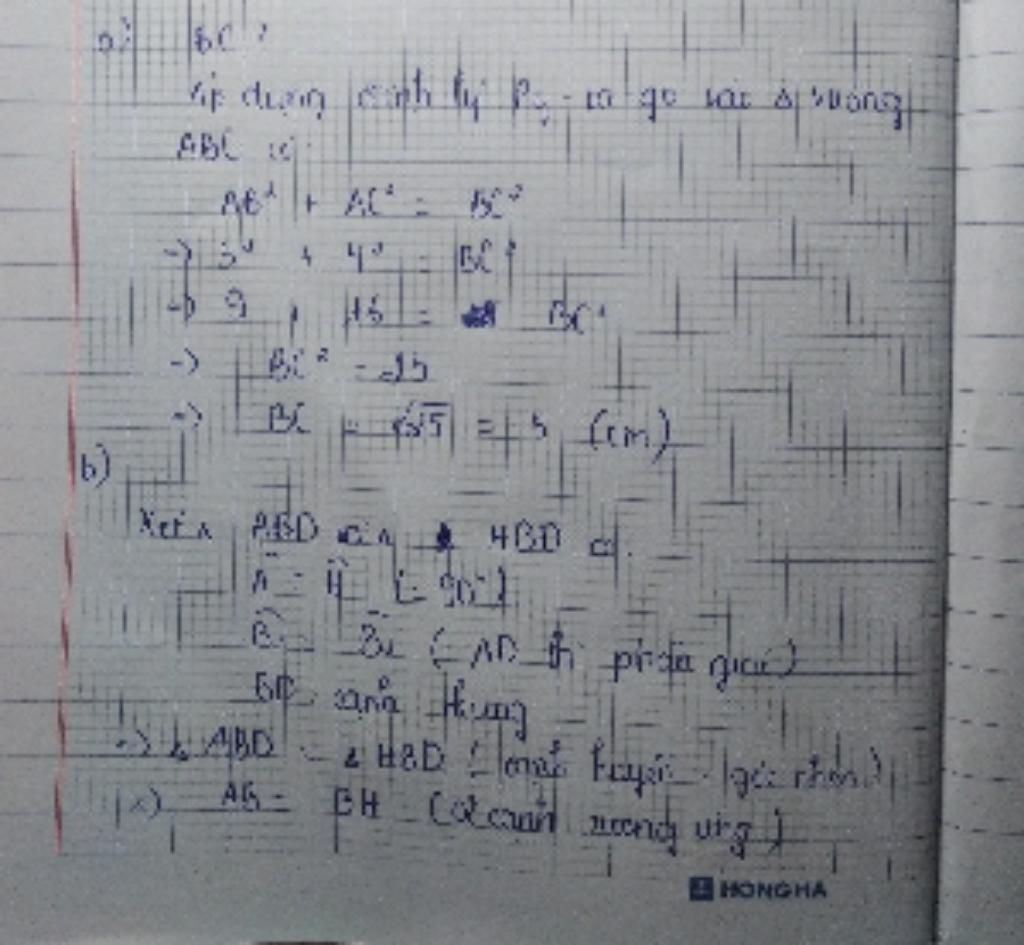 a) BC ?
Áp dụng định lý Py-ta-go vào Δ vuông
ABC có:
AB² + AC² = BC²
=) 3² + 4² = BC²
=) 9 + 16 = BC²
=) BC² = 25
=) BC = √25 = 5 (cm)
b)
Xét Δ ABD và Δ HBD có
Â = Ĥ (= 90°)
BD cạnh chung
=) Δ ABD = Δ HBD (cạnh huyền - góc nhọn)
=) AB = BH (2 cạnh tương ứng)
HONG HA